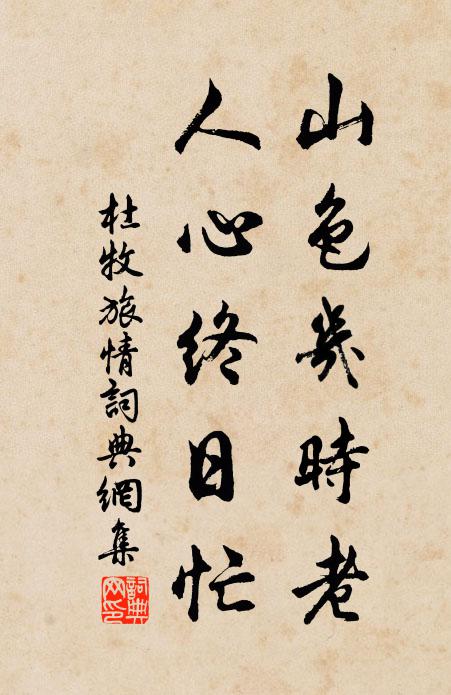 山色幾時老
人心終日忙
杜牧旅情詞典網集
詞典
网印